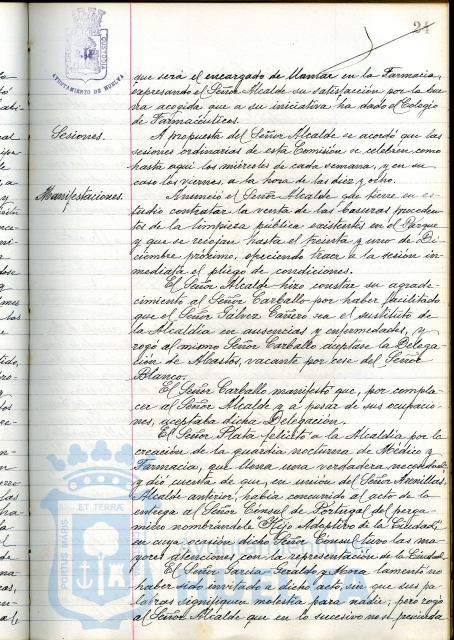 24
AYUNTAMIENTO DE HUELVA
que será el encargado de llamar en la Farmacia,
expresando el Señor Alcalde su satisfacción por la bue
na acogida que a su iniciativa ha dado el Colegio
de Farmacéuticos.
Sesiones.
A propuesta del Señor Alcalde se acordó que las
sesiones ordinarias de esta Comisión se celebren, como
hasta aquí los miércoles de cada semana, y en su
caso los viernes, a la hora de las diez y ocho.
Manifestaciones.
Anunció el Señor Alcalde que tiene en es-
tudio contratar la venta de las basuras proceden-
tes de la limpieza pública existentes en el Parque
y que se recojan hasta el treinta y uno de Di-
ciembre próximo, ofreciendo traer a la sesión in-
mediata el pliego de condiciones.
El Señor Alcalde hizo constar su agrade-
cimiento al Señor Carballo por haber facilitado
que el Señor Gálvez Cañero sea el sustituto de
la Alcaldía en ausencias y enfermedades, y
rogó al mismo Señor Carballo aceptase la Delega
ción de Abastos, vacante por cese del Señor
Blanco.
El Señor Carballo manifestó que, por compla-
cer al Señor Alcalde y a pesar de sus ocupacio-
nes, aceptaba dicha Delegación.
El Señor Plata felicitó a la Alcaldía por la
creación de la guardia nocturna de Médico y
Farmacia, que llena una verdadera necesidad,
y dió cuenta de que, en unión del Señor
Alcalde anterior, había concurrido al acto de la
entrega al Señor Consul de Portugal del perga-
mino nombrándole Hijo Adoptivo de la Ciudad,
en cuya ocasión dicho Señor Consul tuvo las ma
yores atenciones con la representación de la Ciudad.
El Señor García Geraldo y Mora lamentó no
haber sido invitado a dicho acto, sin que sus pa
labras signifiquen molestia para nadie; pero rogó
al Señor Alcalde que en lo sucesivo no se prescinda
PORTUS MARIS ET TERRAE